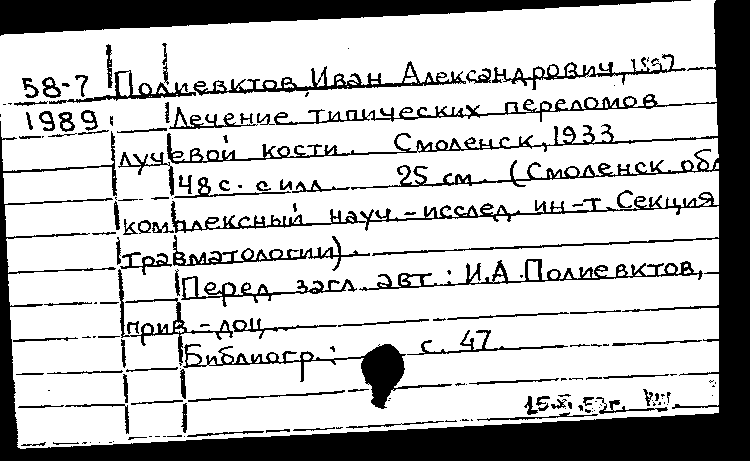 58-7 Полиевктов, Иван Александрович, 1897
1989 Лечение типических переломов
лучевой кости. Смоленск, 1933
48 с. с илл. 25 см. (Смоленск. обл
комплексный науч.-исслед. ин-т. Секция
травматологии).
Перед загл. авт.: И.А. Полиевктов,
прив.-доц.
Библиогр.: с. 47.
15.XI.53г.